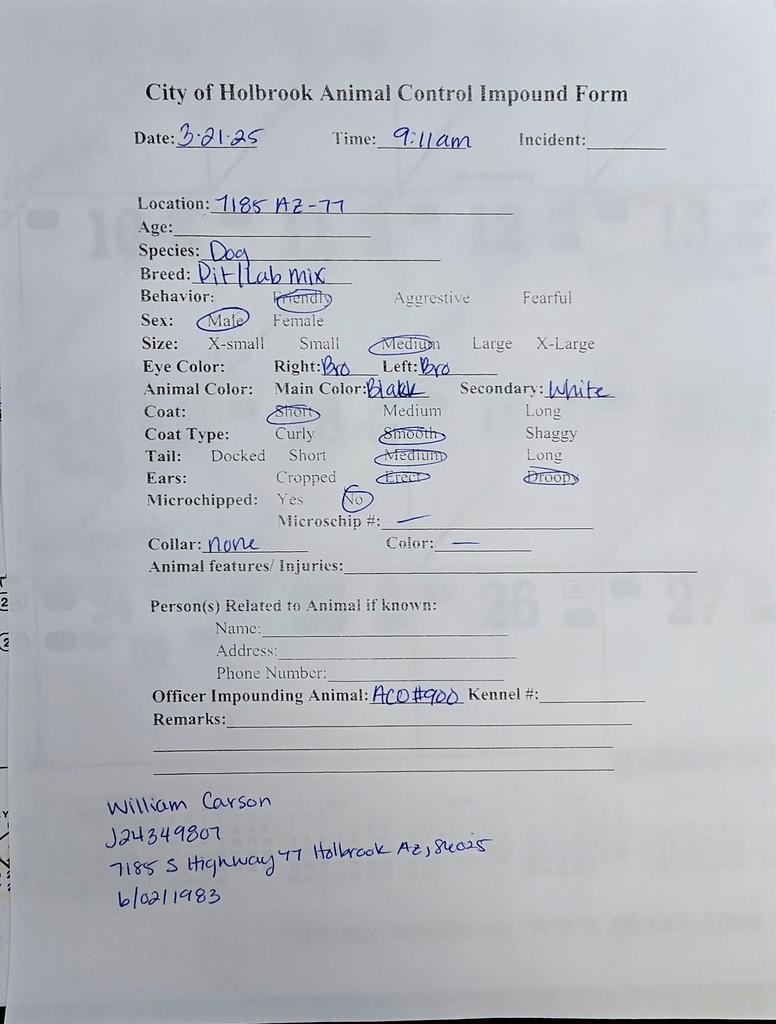 City of Holbrook Animal Control Impound Form
Date: 3-21-25 Time: 9:11am Incident:
Location: 7185 AZ-77
Age:
Species: Dog
Breed: Pit/Lab mix
Behavior: Friendly Aggrestive Fearful
Sex: Male Female
Size: X-small Small Medium Large X-Large
Eye Color: Right: Bro Left: Bro
Animal Color: Main Color: Black Secondary: White
Coat: Short Medium Long
Coat Type: Curly Smooth Shaggy
Tail: Docked Short Medium Long
Ears: Cropped Erect Droopy
Microchipped: Yes No
Microschip #: —
Collar: none Color: —
Animal features/ Injuries:
Person(s) Related to Animal if known:
Name:
Address:
Phone Number:
Officer Impounding Animal: ACO#900 Kennel #:
Remarks:
William Carson
J24349807
7185 S Highway 77 Holbrook Az, 86025
6/02/1983